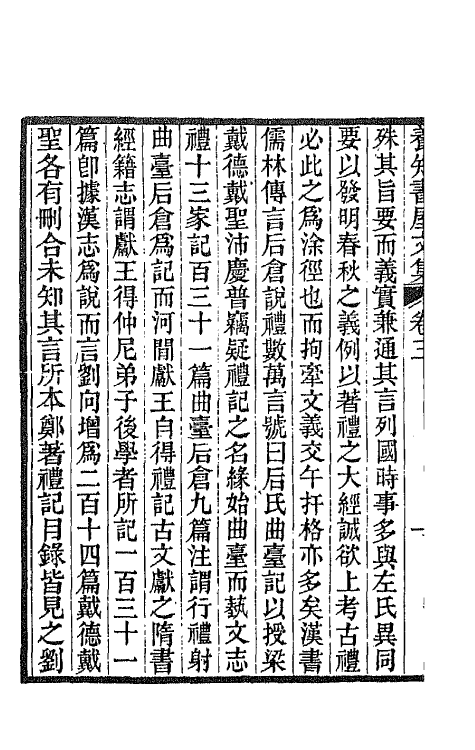 養知書屋文集　卷三　一
殊其旨要而義實兼通其言列國時事多與左氏異同
要以發明春秋之義例以著禮之大經誠欲上考古禮
必此之爲涂徑也而拘牽文義交午扞格亦多矣漢書
儒林傳言后倉說禮數萬言號曰后氏曲臺記以授梁
戴德戴聖沛慶普竊疑禮記之名緣始曲臺而蓺文志
禮十三家記百三十一篇曲臺后倉九篇注謂行禮射
曲臺后倉爲記而河閒獻王自得禮記古文獻之隋書
經籍志謂獻王得仲尼弟子後學者所記一百三十一
篇卽據漢志爲說而言劉向增爲二百十四篇戴德戴
聖各有刪合未知其言所本鄭著禮記目錄皆見之劉